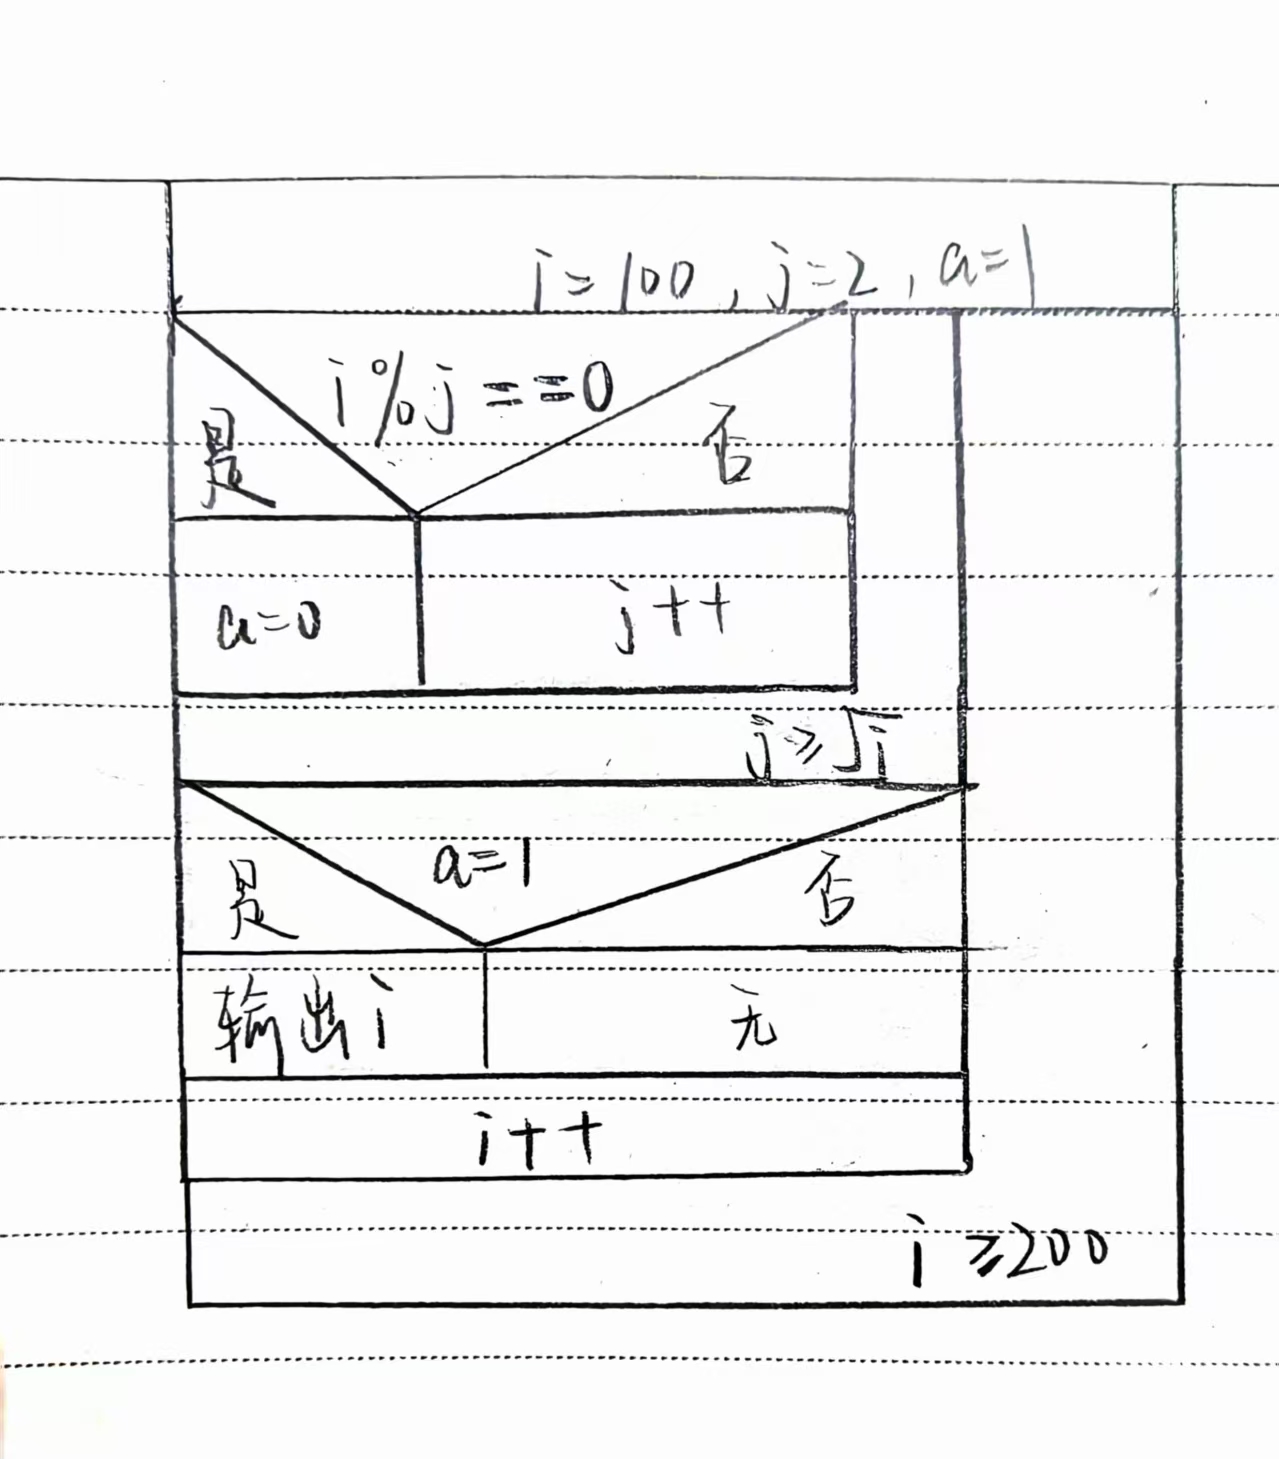 i=100, j=2, a=1
i%j==0
是 否
a=0 j++
j≥√i
a=1
是 否
输出i 无
i++
i≥200